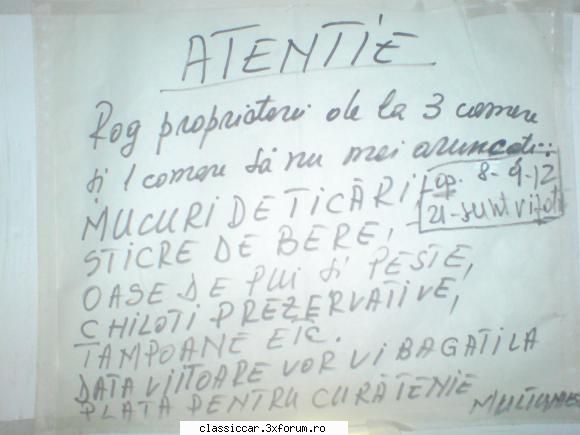 ATENTIE
Rog proprietarii de la 3 camere
și 1 camere să nu mai aruncați..
MUCURI DE TICĂRI,
ap. 8-9-12
21-sunt vizați
STICRE DE BERE,
OASE DE PUI ȘI PESTE,
CHILOTI PREZERVATIVE,
TAMPOANE ETC.
DATA VIITOARE VOR VI BAGATI LA
PLATA PENTRU CURĂTENIE
classiccar.3xforum.ro